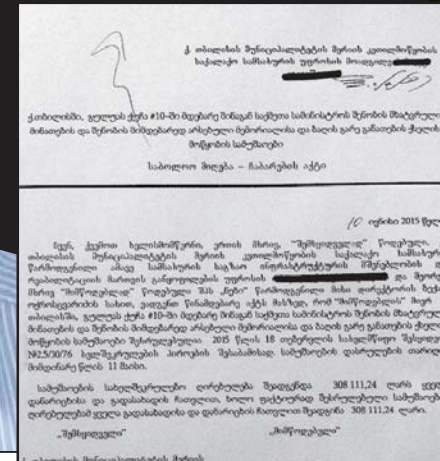 ქ. თბილისის მუნიციპალიტეტის მერიის კეთილმოწყობის
საქალაქო სამსახურის უფროსის მოადგილე
ქ.თბილისში, გულუას ქუჩა #10-ში მდებარე შინაგან საქმეთა სამინისტროს შენობის მხატვრული
მინათების და შენობის მიმდებარედ არსებული მემორიალისა და ბაღის გარე განათების ქსელის
მოწყობის სამუშაოები
საბოლოო მიღება – ჩაბარების აქტი
10 ივნისი 2015 წელი
ჩვენ, ქვემოთ ხელისმომწერნი, ერთის მხრივ, "შემსყიდველად" წოდებული,
თბილისის მუნიციპალიტეტის მერიის კეთილმოწყობის საქალაქო სამსახურის
წარმოდგენილი ამავე სამსახურის საგზაო ინფრასტრუქტურის მშენებლობის
რეაბილიტაციის მართვის განყოფილების უფროსის და მეორე
მხრივ "მიმწოდებლად" წოდებული შპს წარმოდგენილი მისი დირექტორის
სახით, ვადგენთ წინამდებარე აქტს მასზედ, რომ "მიმწოდებლის" მიერ
თბილისში, გულუას ქუჩა #10-ში მდებარე შინაგან საქმეთა სამინისტროს შენობის მხატვრული
მინათების და შენობის მიმდებარედ არსებული მემორიალისა და ბაღის გარე განათების ქსელის
მოწყობის სამუშაოები შესრულებულია 2015 წლის 18 თებერვლის სახელმწიფო შესყიდვის
№25/30/76 ხელშეკრულების პირობების შესაბამისად. სამუშაოების დასრულების თარიღი
მიმდინარე წლის 11 მაისი.
სამუშაოების სახელშეკრულებო ღირებულება შეადგენდა 308 111,24 ლარს ყველა
დანარიცხისა და გადასახადის ჩათვლით, ხოლო ფაქტიურად შესრულებული სამუშაოების
ღირებულებამ ყველა გადასახადისა და დანარიცხის ჩათვლით შეადგინა 308 111,24 ლარი.
"შემსყიდველი" „მიმწოდებელი"
თბილისის მუნიციპალიტეტის მერიის